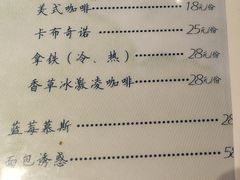 美式咖啡 18元/份
卡布奇诺 25元/份
拿铁（冷、热） 28元/份
香草冰激凌咖啡 28元/份
蓝莓慕斯 28
面包诱惑